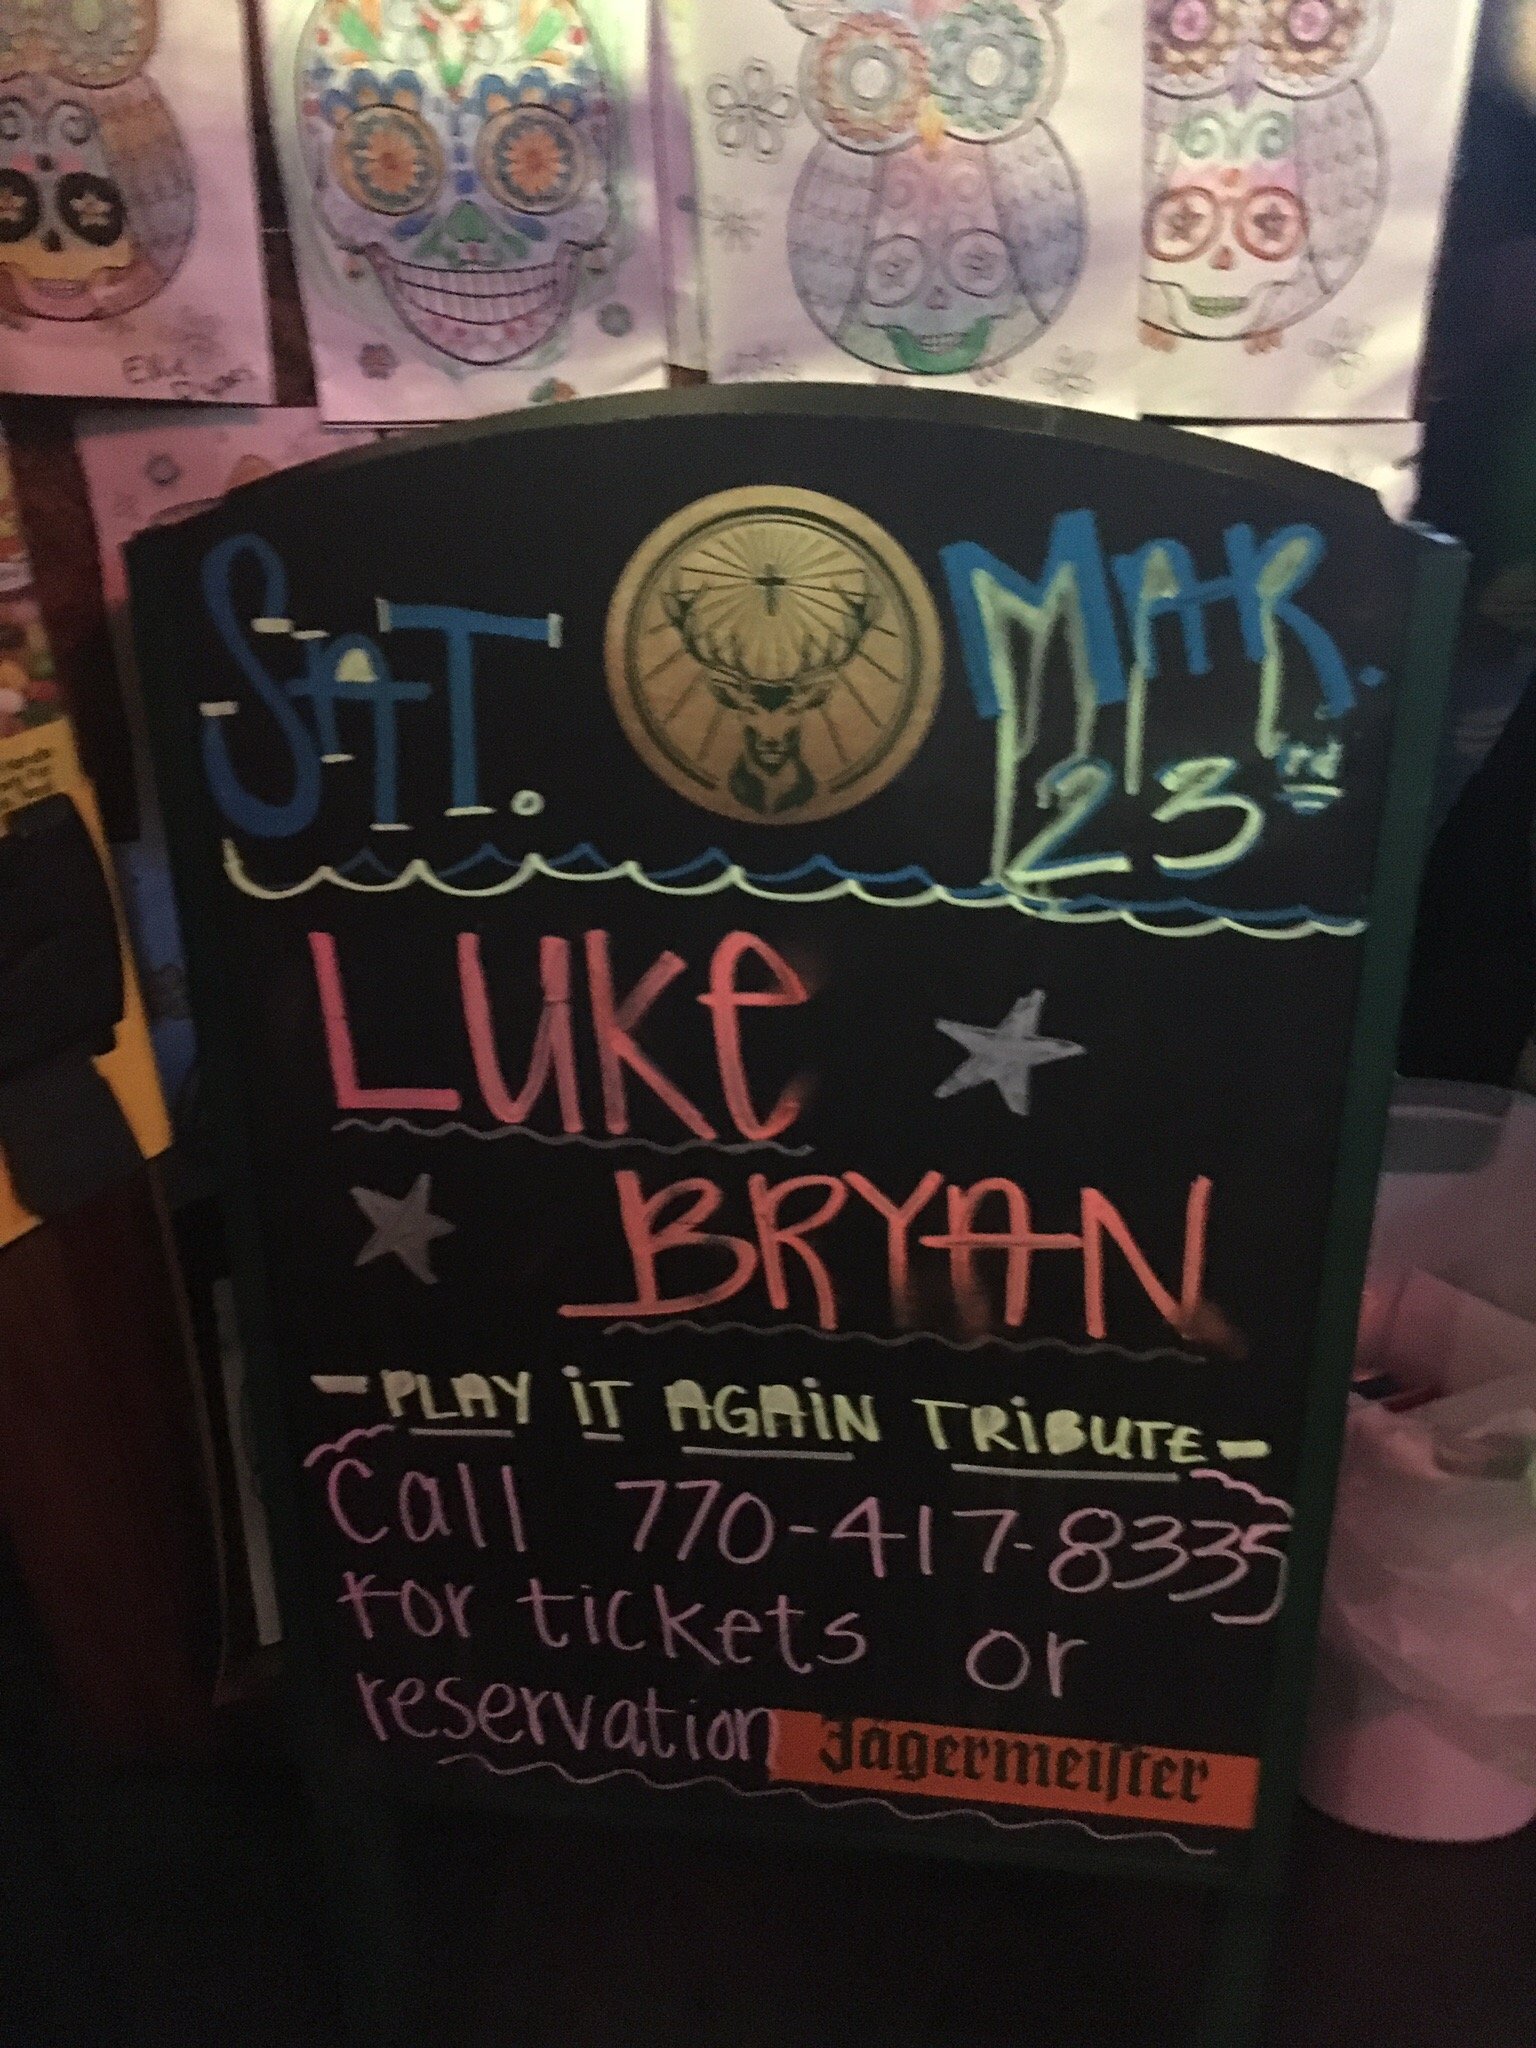 SAT. MAR. 23rd
LUKe
BRYAN
- PLAY iT AGAiN TRiBUTE -
Call 770-417-8335
For tickets or
reservation
Jägermeister